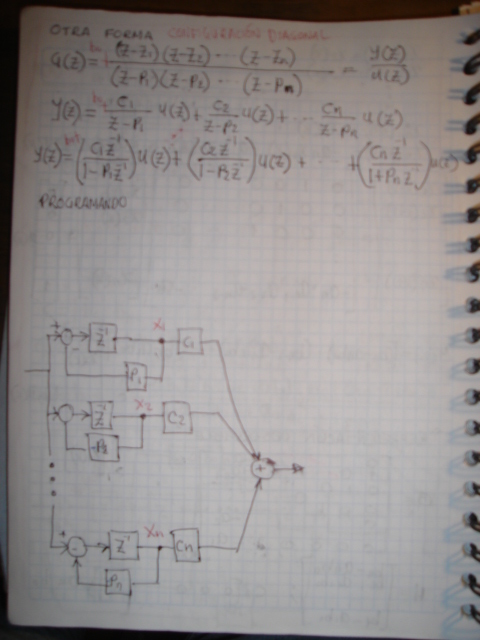 OTRA FORMA CONFIGURACIÓN DIAGONAL
G(z) = b₀ + (z-z₁)(z-z₂) ... (z-zn) / (z-P₁)(z-P₂) ... (z-Pn) = Y(z) / U(z)
Y(z) = b₀ + C₁ / z-P₁ U(z) + C₂ / z-P₂ U(z) + ... Cn / z-Pn U(z)
Y(z) = (C₁z⁻¹ / 1-P₁z⁻¹) U(z) + (C₂z⁻¹ / 1-P₂z⁻¹) U(z) + ... + (Cn z⁻¹ / 1+Pn z⁻¹) U(z)
PROGRAMANDO
+ - z⁻¹ X₁ C₁
P₁
z⁻¹ X₂ C₂
-P₂
+
+ - z⁻¹ Xn Cn
Pn